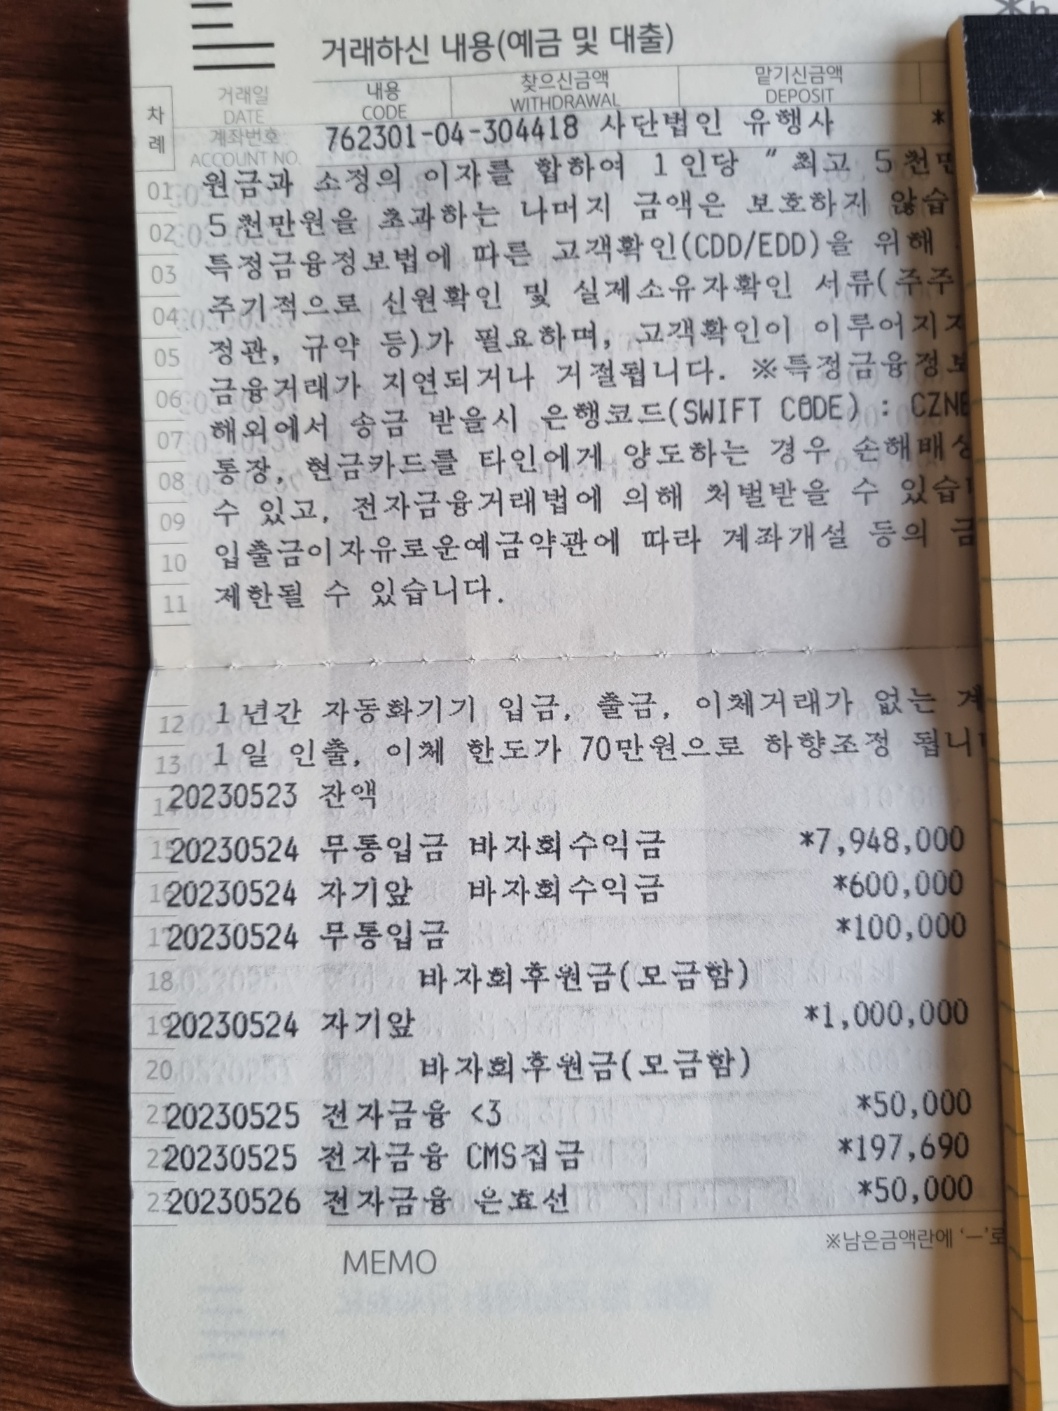 거래하신 내용(예금 및 대출)
거래일 내용 찾으신금액 맡기신금액
DATE CODE WITHDRAWAL DEPOSIT
차례
계좌번호 762301-04-304418 사단법인 유행사 *
ACCOUNT NO.
01 원금과 소정의 이자를 합하여 1인당 "최고 5천만
02 5천만원을 초과하는 나머지 금액은 보호하지 않습
03 특정금융정보법에 따른 고객확인(CDD/EDD)을 위해
04 주기적으로 신원확인 및 실제소유자확인 서류(주주
05 정관, 규약 등)가 필요하며, 고객확인이 이루어지지
06 금융거래가 지연되거나 거절됩니다. ※특정금융정보
07 해외에서 송금 받을시 은행코드(SWIFT CODE) : CZNB
08 통장, 현금카드를 타인에게 양도하는 경우 손해배상
09 수 있고, 전자금융거래법에 의해 처벌받을 수 있습니
10 입출금이자유로운예금약관에 따라 계좌개설 등의 금
11 제한될 수 있습니다.
12 1년간 자동화기기 입금, 출금, 이체거래가 없는 계
13 1일 인출, 이체 한도가 70만원으로 하향조정 됩니다
14 20230523 잔액
15 20230524 무통입금 바자회수익금 *7,948,000
16 20230524 자기앞 바자회수익금 *600,000
17 20230524 무통입금 *100,000
18 바자회후원금(모금함)
19 20230524 자기앞 *1,000,000
20 바자회후원금(모금함)
21 20230525 전자금융 <3 *50,000
22 20230525 전자금융 CMS집금 *197,690
23 20230526 전자금융 은효선 *50,000
※남은금액란에 '-'로
MEMO